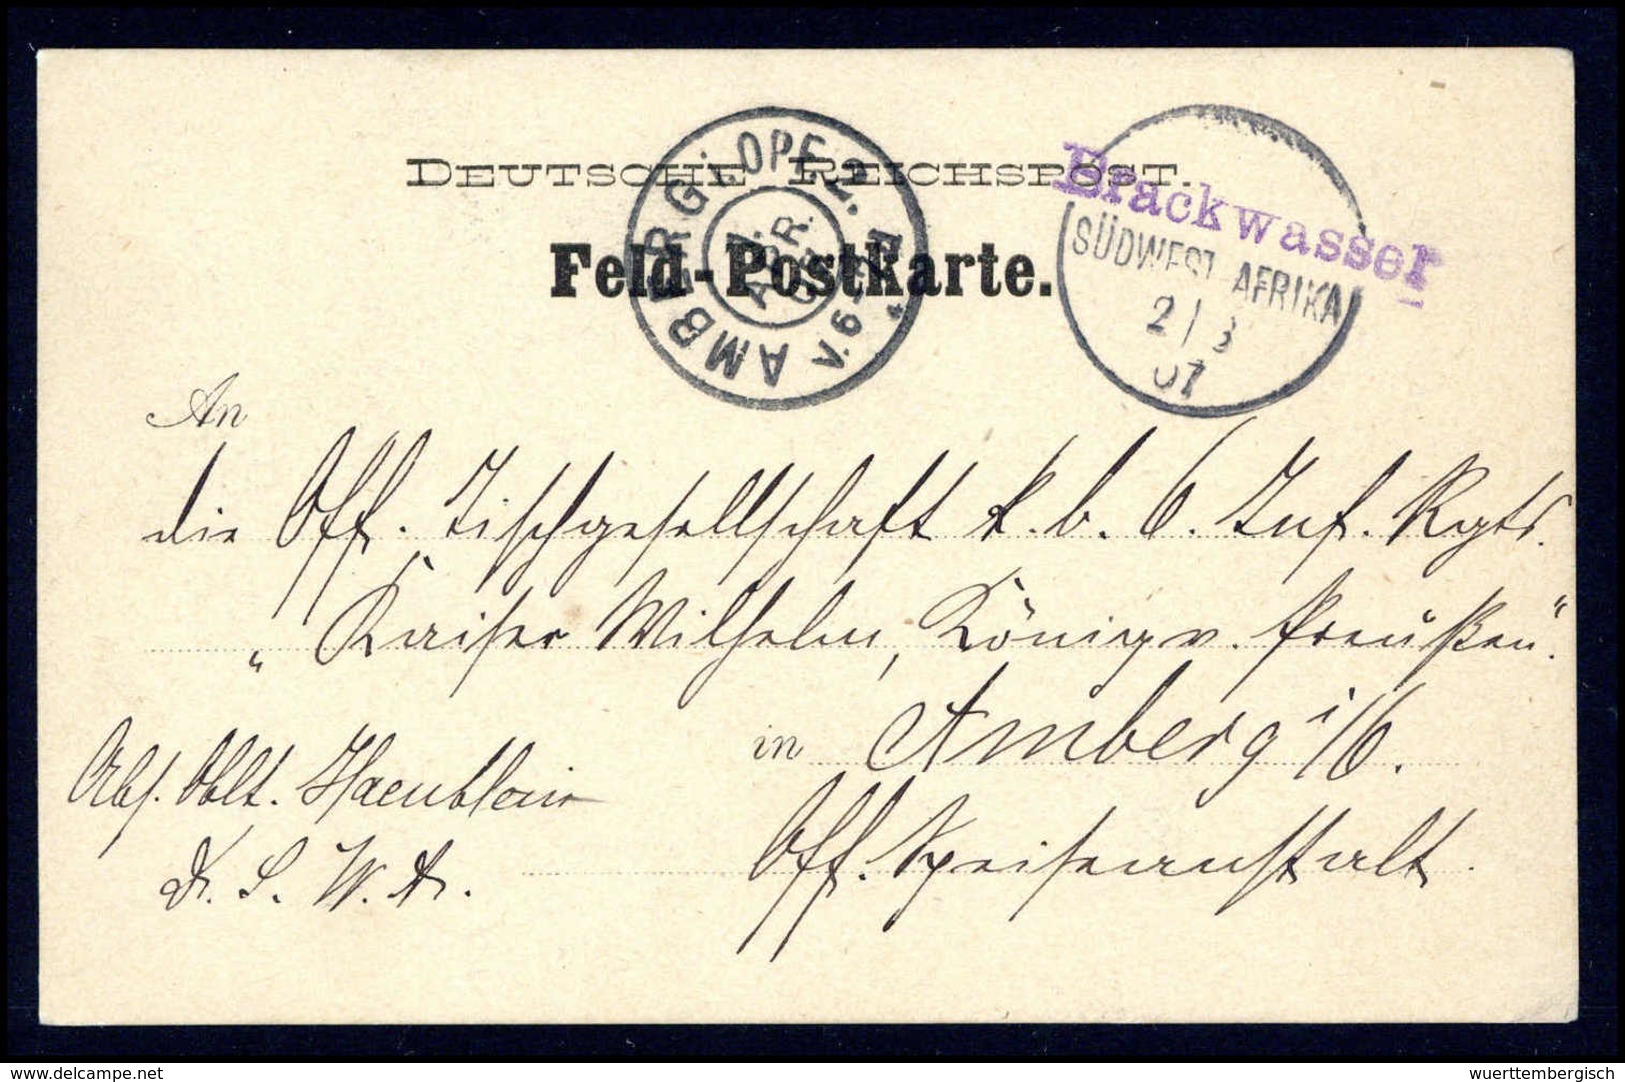 DEUTSCHE REICHSPOST.
Feld-Postkarte.
AMBERG. OPF. 2.
APR.
Brackwasser
SÜDWEST AFRIKA
2/3
07
An
die Off. Tischgesellschaft k. b. 6. Inf. Rgts.
„Kaiser Wilhelm, König v. Preußen“.
in Amberg i/O.
Off. Speiseanstalt.
Abs. Oblt. Haeublein
D. S. W. A.
delcampe.net
wuerttembergisch